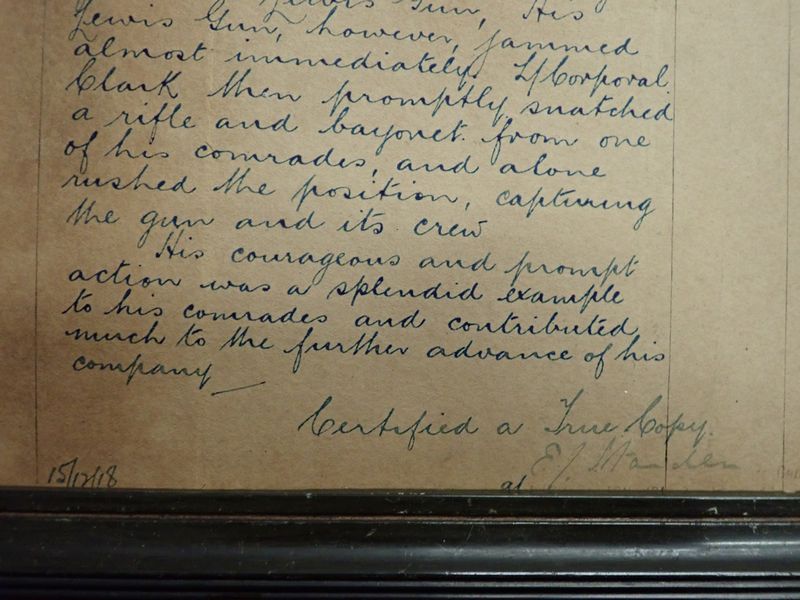 Lewis Gun, His
Lewis Gun, however, jammed
almost immediately. L/Corporal
Clark then promptly snatched
a rifle and bayonet from one
of his comrades, and alone
rushed the position, capturing
the gun and its crew
His courageous and prompt
action was a splendid example
to his comrades and contributed
much to the further advance of his
company
Certified a True Copy.
15/12/18